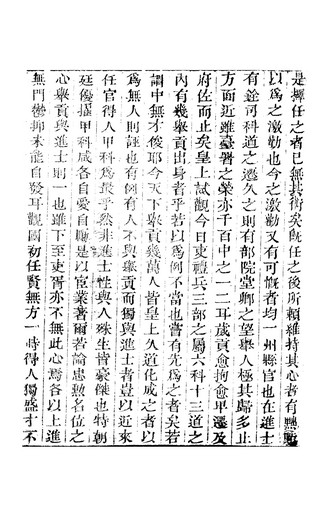 是擇任之者已無其術矣旣任之後所賴維持其心者有黜陟
以爲之激勸也今之激勸又有可慨者均一州縣官也在進士
有銓河科道之遷久之則有部院堂卿之望舉人極其歸多止
方面近雖臺署之榮亦千百中之一二耳歲貢愈拘愈甲遷及
府佐而止矣皇上試觀今日吏禮兵三部之屬六科十三道之
內有幾舉貢出身者乎若以爲例不當也嘗有先爲之者矣若
謂中無才俊耶今天下舉貢幾萬人皆皇上久道化成之者以
爲無人則誣也有例有人不與舉貢而獨與進士者豈以近來
任官得人甲科爲最乎然非進士性與人殊生皆豪傑也特朝
廷優擢甲科咸各自愛自勵是以宦業著爾若論忠勲名位之
心舉貢與進士則一也雖下至吏胥亦不無此心焉各以上進
無門鬱抑未能自發耳觀國初任賢無方一時得人獨盛才不